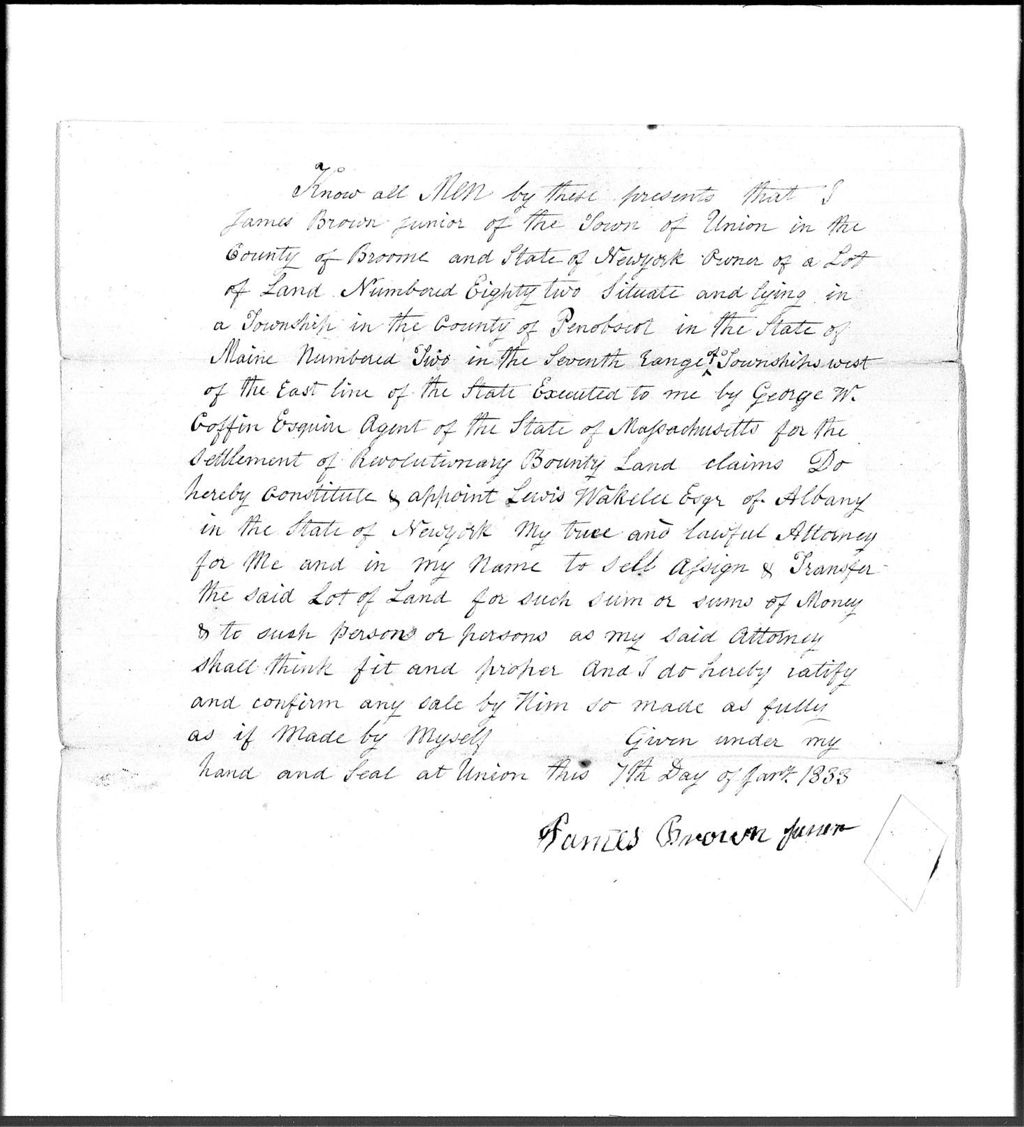 Know all Men by these presents that I
James Brown junior of the Town of Union in the
County of Broome and State of Newyork Owner of a Lot
of Land Numbered Eighty two Situate and lying in
a Township in the County of Penobscot in the State of
Maine Numbered Two in the Seventh Range of Townships west
of the East line of the State Executed to me by George W.
Coffin Esquire Agent of the State of Massachusetts for the
settlement of Revolutionary Bounty Land claims Do
hereby Constitute & appoint Lewis Wakelee Esqr of Albany
in the State of Newyork My true and lawful Attorney
for Me and in my Name to sell Assign & Transfer
the said Lot of Land for such sum or sums of Money
& to such persons or persons as my said Attorney
shall think fit and proper And I do hereby ratify
and confirm any sale by Him so made as fully
as if Made by Myself Given under my
hand and Seal at Union this 7th Day of Jany. 1833
James Brown junior